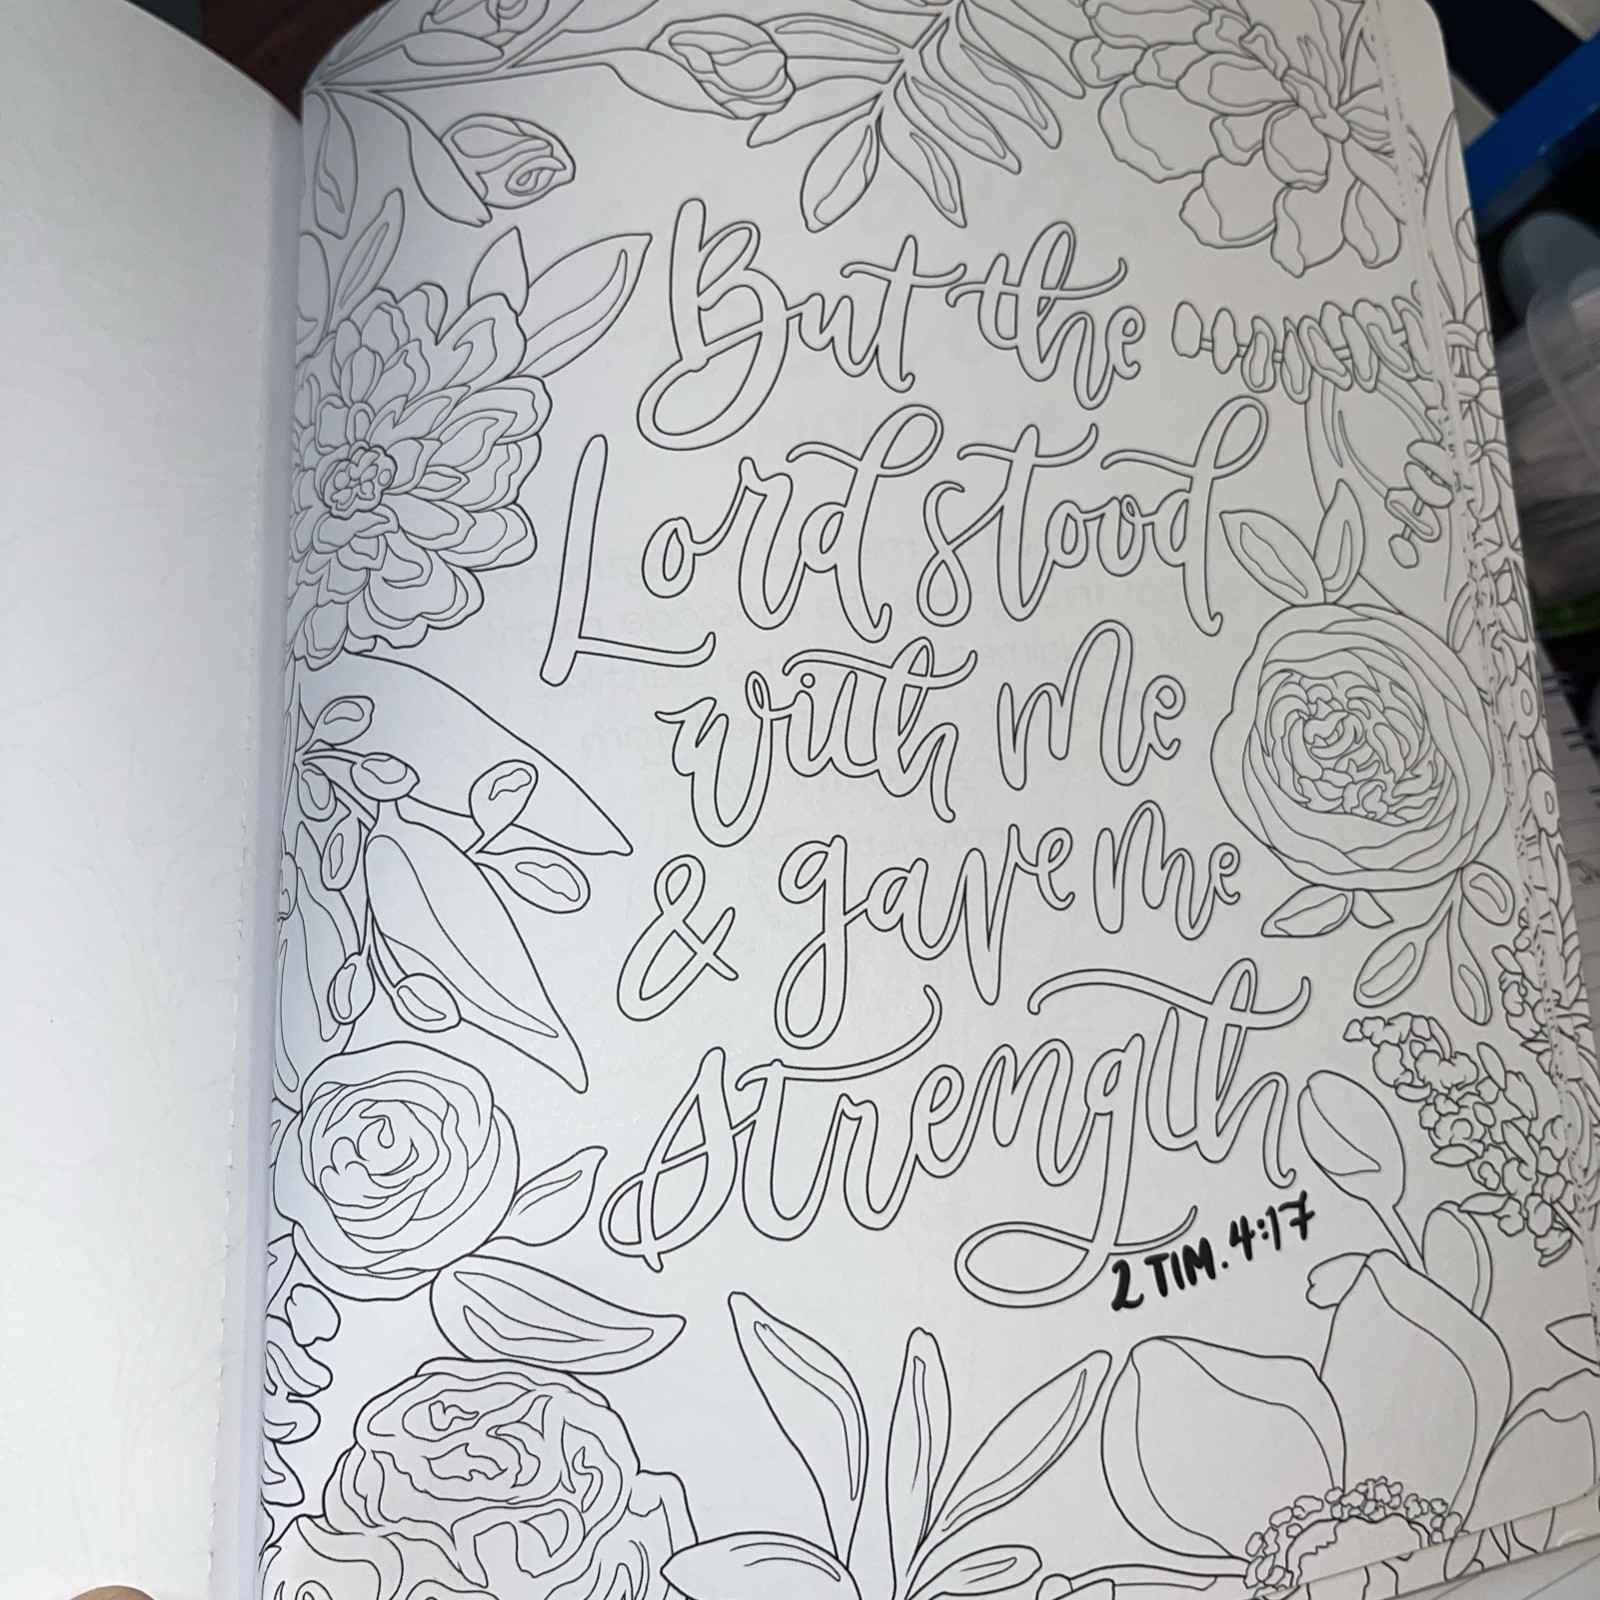 But the
Lord stood
with me
& gave me
strength
2 TIM. 4:17